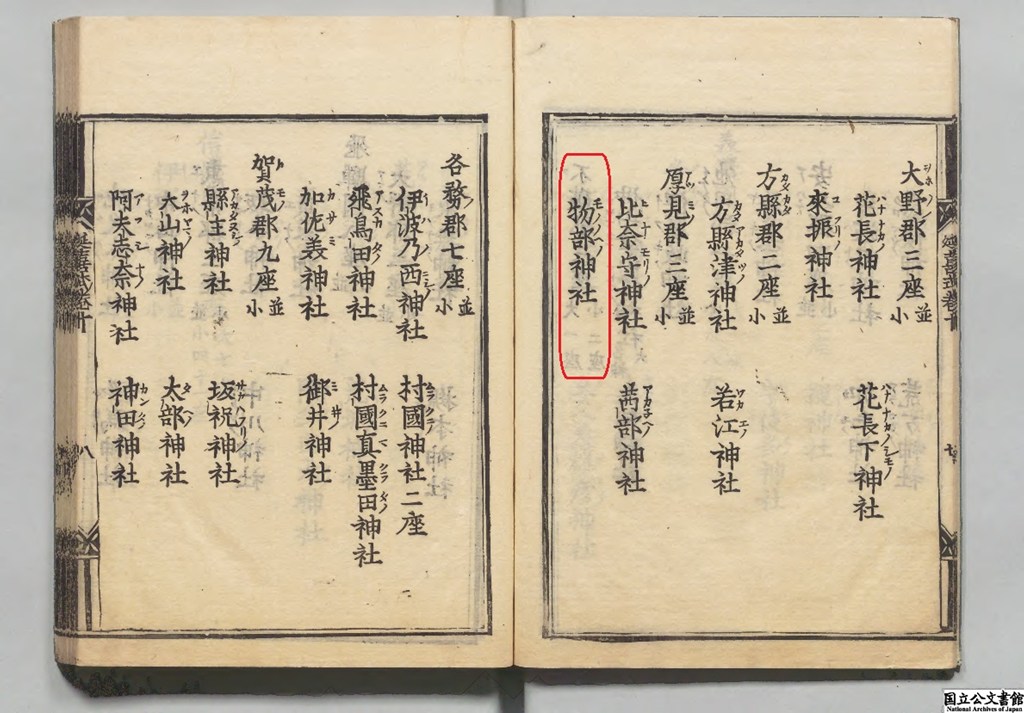 大野郡三座並小
花長神社 花長下神社
來振神社
方縣郡二座並小
方縣津神社 若江神社
厚見郡三座並小
比奈守神社 茜部神社
物部神社
各務郡七座並小
伊波乃西神社 村國神社二座
飛鳥田神社 村國真墨田神社
加佐美神社 御井神社
賀茂郡九座並小
縣主神社 坂祝神社
大山神社 太部神社
阿夫志奈神社 神田神社
延喜式卷十 八
国立公文書館
National Archives of Japan